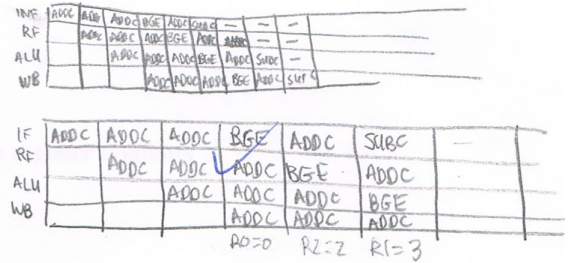 INF ADDC ADD ADDC BGE ADDC SUBC – – –
RF ADDC ADDC ADDC BGE ADDC – –
ALU ADDC ADDC ADDC BGE ADDC SUBC –
WB ADDC ADDC ADDC BGE ADDC SUBC
IF ADDC ADDC ADDC BGE ADDC SUBC –
RF ADDC ADDC ADDC BGE ADDC
ALU ADDC ADDC ADDC BGE
WB ADDC ADDC ADDC
R0=0 R2=2 R1=3